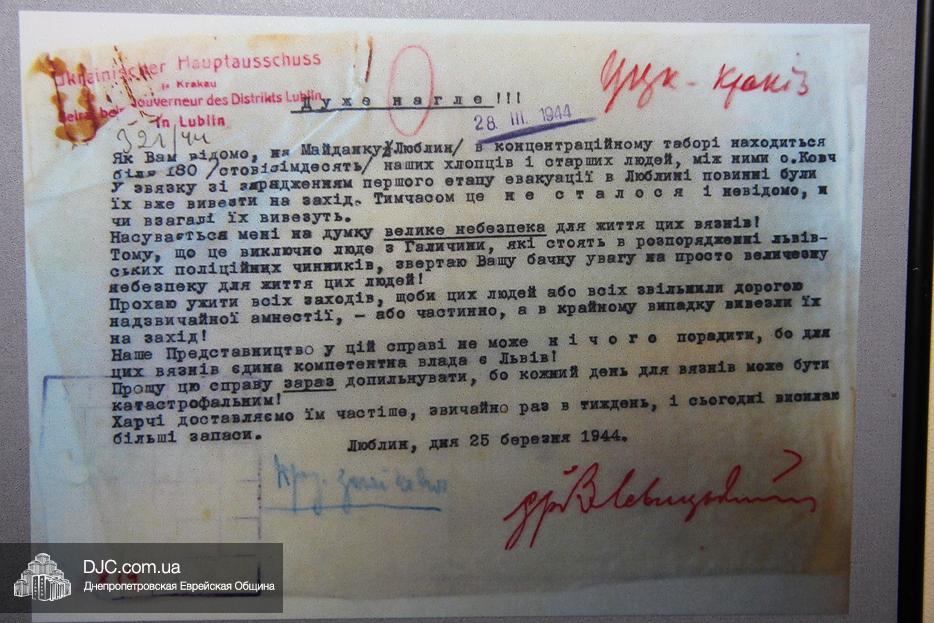 Ukrainischer Hauptausschuss
in Krakau
Beirat beim Gouverneur des Distrikts Lublin
in Lublin
321/44
УЦК - Краків
Дуже нагле!!!
28. III. 1944
Як Вам відомо, на Майданку /Люблин/ в концентраційному таборі находиться
біля 180 /стовісімдесять/ наших хлопців і старших людей, між ними о.Ковч
У звязку зі зарядженням першого етапу евакуації в Люблині повинні були
їх вже вивезти на захід. Тимчасом це н е с т а л о с я і невідомо, и
чи взагалі їх вивезуть.
Насувається мені на думку велике небезпека для життя цих вязнів!
Тому, що це виключно люде з Галичини, які стоять в розпорядженні львів-
ських поліційних чинників, звертаю Вашу бачну увагу на просто величезну
небезпеку для життя цих людей!
Прохаю ужити всіх заходів, щоби цих людей або всіх звільнили дорогою
надзвичайної амнестії, - або частинно, а в крайному випадку вивезли їх
на захід!
Наше Представництво у цій справі не може н і ч о г о порадити, бо для
цих вязнів єдина компетентна влада є Львів!
Прошу цю справу зараз допильнувати, бо кожний день для вязнів може бути
катастрофальним!
Харчі доставляємо їм частіше, звичайно раз в тиждень, і сьогодні висилаю
більші запаси.
Люблин, дня 25 березня 1944.
DJC.com.ua
Днепропетровская Еврейская Община